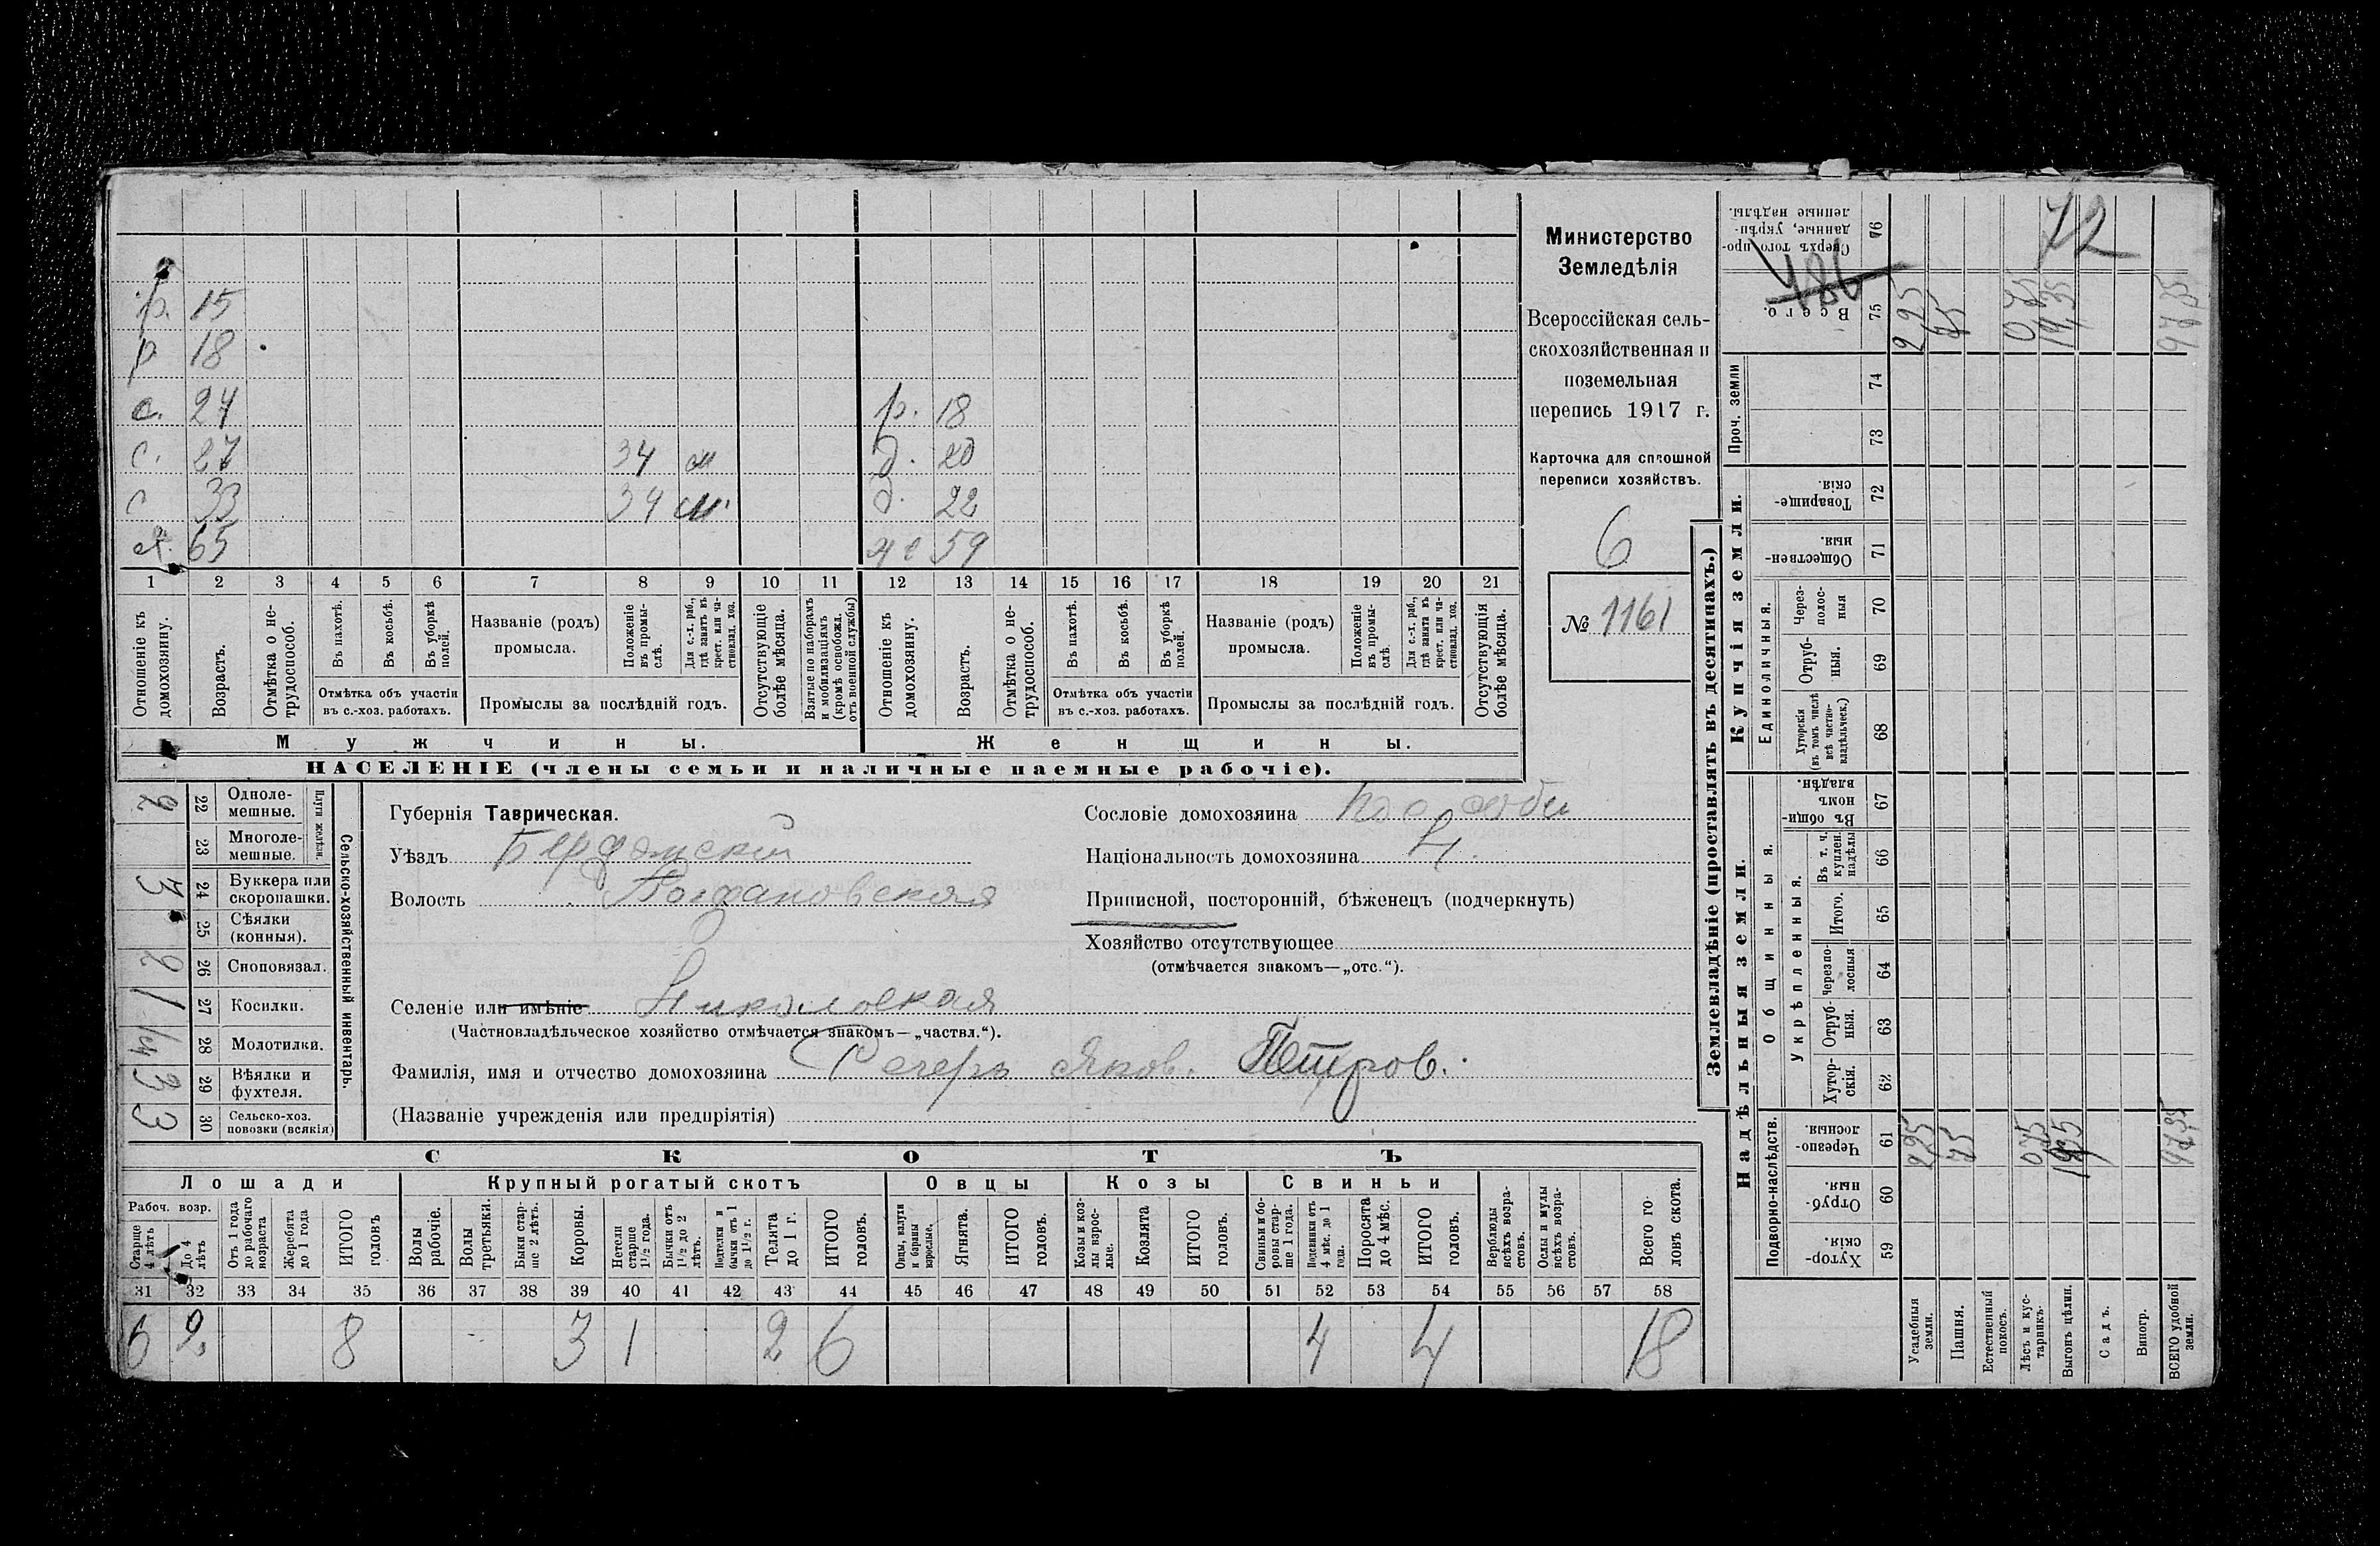 р. 15
р 18
с. 24 р. 18
с. 27 34 д. 20
с 33 34 д. 22
65 59
1 2 3 4 5 6 7 8 9 10 11 12 13 14 15 16 17 18 19 20 21
Отношеніе къ домохозяину.
Возрастъ.
Отмѣтка о не-
трудоспособ.
Въ пахотѣ.
Въ косьбѣ.
Въ уборкѣ
полей.
Отмѣтка объ участіи
въ с.-хоз. работахъ.
Названіе (родъ)
промысла.
Положеніе
въ промы-
слѣ.
Для с.-х. раб.,
гдѣ занятъ въ
крест. или ча-
стновлад. хоз.
Промыслы за послѣдній годъ.
Отсутствующіе
болѣе мѣсяца.
Взятые по наборамъ
и мобилизаціямъ
(кромѣ освобожд.
отъ военной службы)
Отношеніе къ
домохозяину.
Возрастъ.
Отмѣтка о не-
трудоспособ.
Въ пахотѣ.
Въ косьбѣ.
Въ уборкѣ
полей.
Отмѣтка объ участіи
въ с.-хоз. работахъ.
Названіе (родъ)
промысла.
Положеніе
въ промы-
слѣ.
Для с.-х. раб.,
гдѣ занята въ
крест. или ча-
стновлад. хоз.
Промыслы за послѣдній годъ.
Отсутствующія
болѣе мѣсяца.
Мужчины. Женщины.
НАСЕЛЕНІЕ (члены семьи и наличные наемные рабочіе).
Министерство
Земледѣлія
Всероссійская сель-
скохозяйственная и
поземельная
перепись 1917 г.
Карточка для сплошной
переписи хозяйствъ.
6
№ 1161
2 22 Одноле-
мешные.
23 Многоле-
мешные.
Плуги желѣзн.
3 24 Буккера или
скоропашки.
25 Сѣялки
(конныя).
2 26 Сноповязал.
1 27 Косилки.
1/4 28 Молотилки.
3 29 Вѣялки и
фухтеля.
3 30 Сельско-хоз.
повозки (всякія)
Сельско-хозяйственный инвентарь.
Губернія Таврическая.
Уѣздъ Бердянскій
Волость Богдановская
Селеніе или имѣніе Николаевская
(Частновладѣльческое хозяйство отмѣчается знакомъ—„частвл.“).
Фамилія, имя и отчество домохозяина Яков. Петров.
(Названіе учрежденія или предпріятія)
Сословіе домохозяина
Національность домохозяина
Приписной, посторонній, бѣженецъ (подчеркнуть)
Хозяйство отсутствующее
(отмѣчается знакомъ—„отс.“).
СКОТЪ
Лошади Крупный рогатый скотъ Овцы Козы Свиньи
Рабоч. возр.
Старше
4 лѣтъ
До 4
лѣтъ
Отъ 1 года
до рабочаго
возраста
Жеребята
до 1 года
ИТОГО
головъ
Волы
рабочіе.
Волы
третьяки.
Быки стар-
ше 2 лѣтъ.
Коровы.
Нетели
старше
1 1/2 года.
Бычки отъ
1 1/2 до 2
лѣтъ.
Подтелки и
бычки отъ 1
до 1 1/2 г.
Телята
до 1 г.
ИТОГО
головъ.
Овцы, валухи
и бараны
взрослые.
Ягнята.
ИТОГО
головъ.
Козы и коз-
лы взрос-
лые.
Козлята
ИТОГО
головъ.
Свиньи и бо-
ровы стар-
ше 1 года.
Подсвинки отъ
4 мѣс. до 1
года.
Поросята
до 4 мѣс.
ИТОГО
головъ.
Верблюды
всѣхъ возра-
стовъ.
Ослы и мулы
всѣхъ возра-
стовъ.
Всего го-
ловъ скота.
31 32 33 34 35 36 37 38 39 40 41 42 43 44 45 46 47 48 49 50 51 52 53 54 55 56 57 58
6 2 8 3 1 2 6 4 4 18
Землевладѣніе (проставлять въ десятинахъ.)
Надѣльныя земли. Купчія земли.
Подворно-наслѣдств.
Общинныя.
Укрѣпленныя.
Единоличныя.
Проч. земли
Сверхъ того про-
данные, укрѣп-
ленные надѣлы. 76
72
486
Всего. 75 2,25 75 0,75 19,35 97,35
74
73
Товарище-
скія. 72
Обществен-
ныя. 71
Через-
полос-
ныя 70
Отруб-
ныя. 69
Хуторскія
(въ томъ числѣ
всѣ частно-
владѣльческ.) 68
Въ общи-
номъ
владѣн. 67
Въ т. ч.
куплен.
надѣлы 66
Итого. 65
Черезпо-
лосныя 64
Отруб-
ныя. 63
Хутор-
скія. 62
Черезпо-
лосныя. 61 2,25 75 0,75 19,35 97,35
Отруб-
ныя. 60
Хутор-
скія. 59
Усадебныя
земли.
Пашня.
Естественный
покосъ.
Лѣсъ и кус-
тарникъ.
Выгонъ цѣлин.
Садъ.
Виногр.
ВСЕГО удобной
земли.